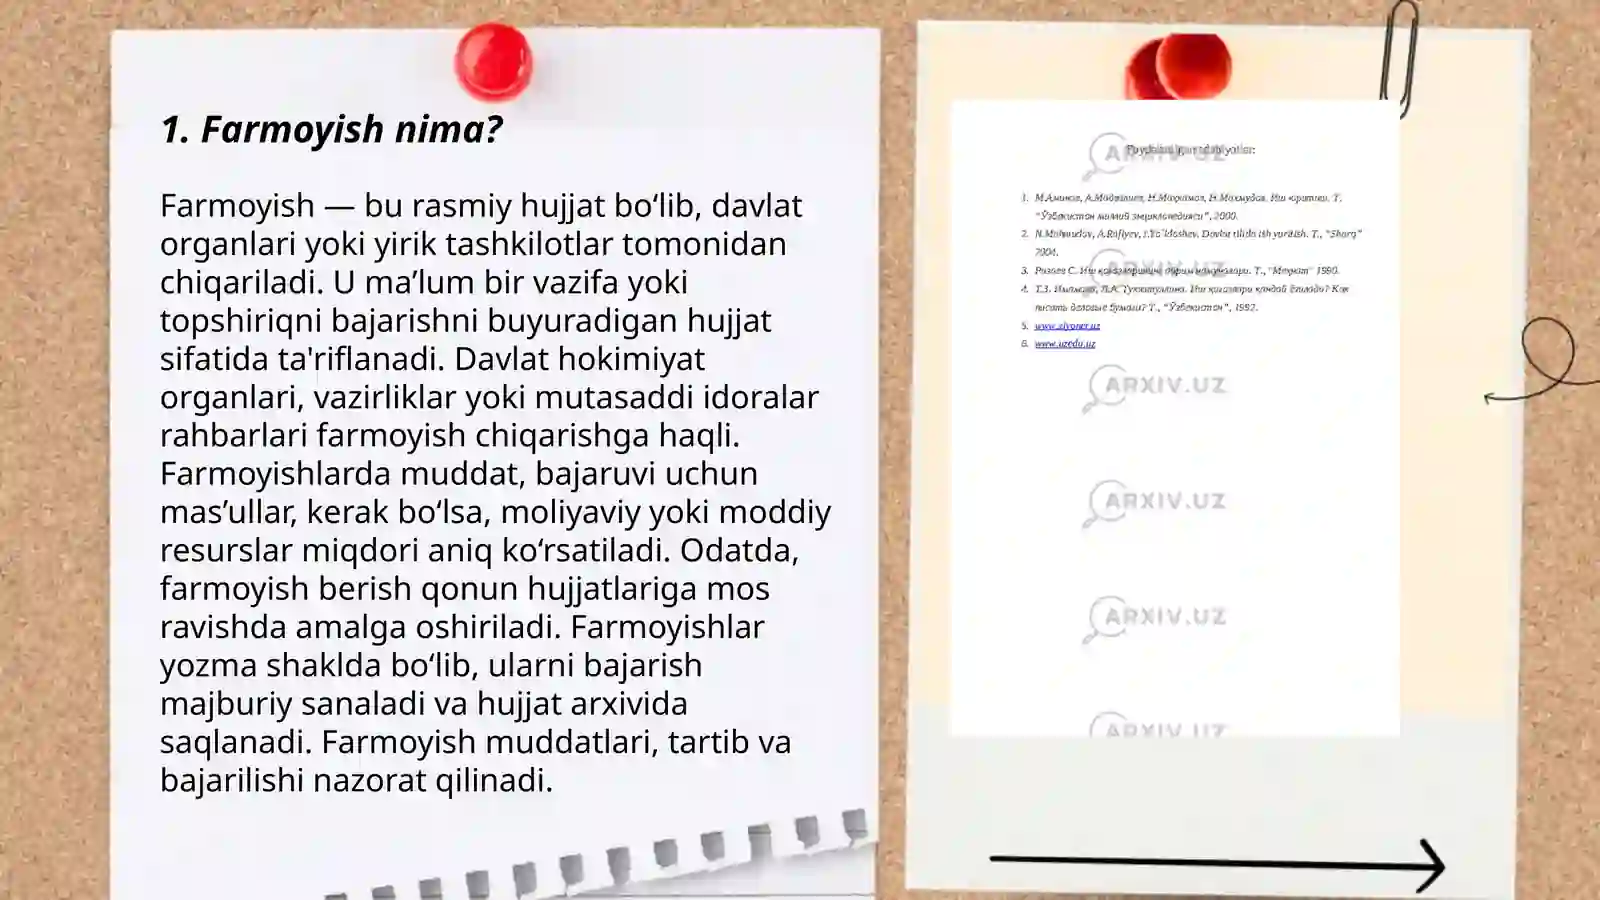 1. Farmoyish nima?
Farmoyish — bu rasmiy hujjat bo‘lib, davlat
organlari yoki yirik tashkilotlar tomonidan
chiqariladi. U ma’lum bir vazifa yoki
topshiriqni bajarishni buyuradigan hujjat
sifatida ta'riflanadi. Davlat hokimiyat
organlari, vazirliklar yoki mutasaddi idoralar
rahbarlari farmoyish chiqarishga haqli.
Farmoyishlarda muddat, bajaruvi uchun
mas’ullar, kerak bo‘lsa, moliyaviy yoki moddiy
resurslar miqdori aniq ko‘rsatiladi. Odatda,
farmoyish berish qonun hujjatlariga mos
ravishda amalga oshiriladi. Farmoyishlar
yozma shaklda bo‘lib, ularni bajarish
majburiy sanaladi va hujjat arxivida
saqlanadi. Farmoyish muddatlari, tartib va
bajarilishi nazorat qilinadi.
ARXIV.UZ
1. М.Аминов, А.Мадвалиев, Н.Маҳкамов, Н.Махмудов. Иш юритиш. Т.
“Ўзбекистон миллий энциклопедияси”, 2000.
2. N.Mahmudov, A.Rafiyev, I.Yo‘ldoshev. Davlat tilida ish yuritish. T., “Sharq”
2004.
ARXIV.UZ
3. С. Иш қоғозларининг айрим намуналари. Т., “Меҳнат” 1990.
4. Иш қоғозлари қандай ёзилади? Как
писать деловые бумаги? Т., “Ўзбекистон”, 1992.
5. www.ziyonet.uz
6. www.uzedu.uz
ARXIV.UZ
ARXIV.UZ
ARXIV.UZ
ARXIV.UZ